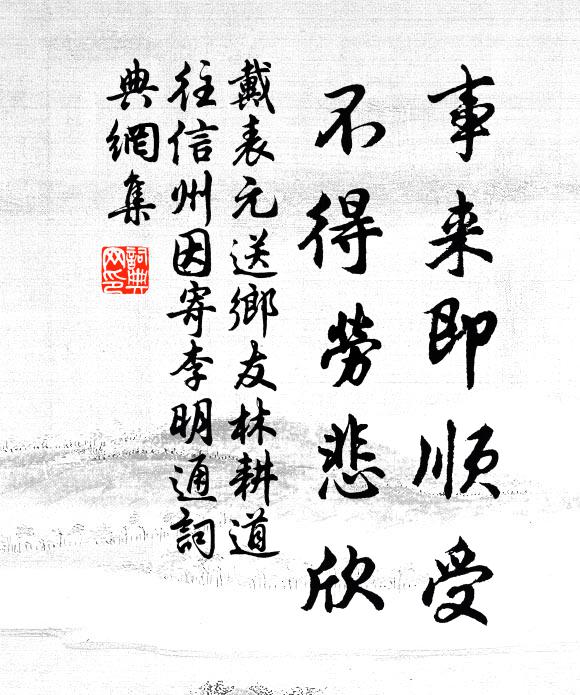 事来即順受
不得勞悲欣
戴表元送鄉友林耕道
往信州因寄李明通詞
典網集
詞典网印